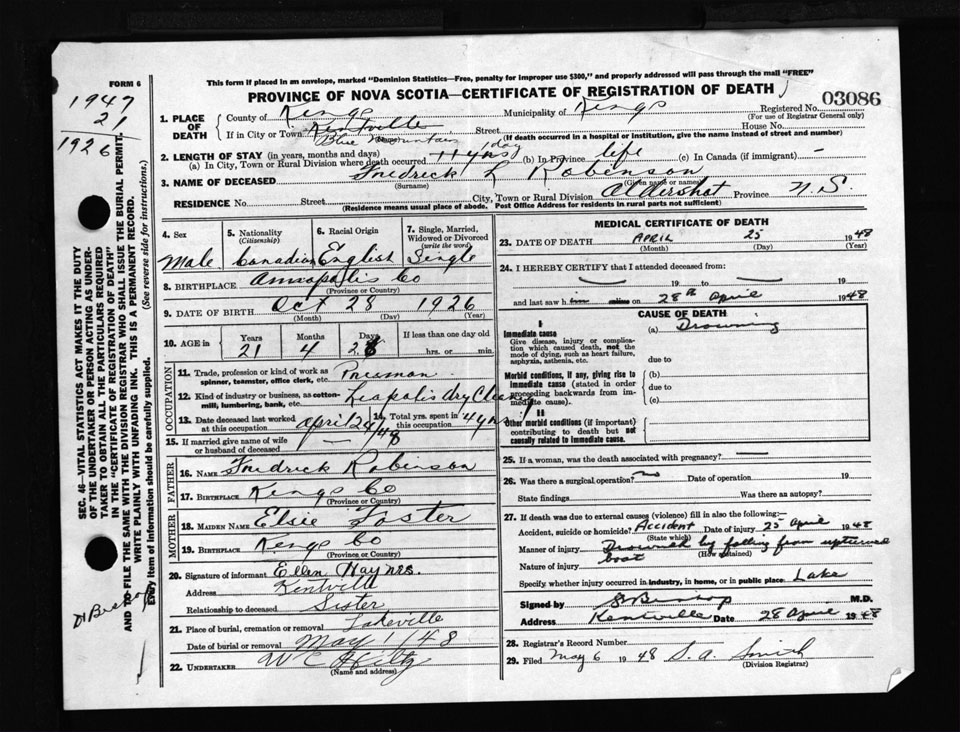 FORM 6
This form if placed in an envelope, marked "Dominion Statistics—Free, penalty for improper use $300," and properly addressed will pass through the mail "FREE"
PROVINCE OF NOVA SCOTIA—CERTIFICATE OF REGISTRATION OF DEATH
1947
21
1926
SEC. 46—VITAL STATISTICS ACT MAKES IT THE DUTY
OF THE UNDERTAKER OR PERSON ACTING AS UNDER-
TAKER TO OBTAIN ALL THE PARTICULARS REQUIRED
IN THE "CERTIFICATE OF REGISTRATION OF DEATH"
AND TO FILE THE SAME WITH THE DIVISION REGISTRAR WHO SHALL ISSUE THE BURIAL PERMIT.
WRITE PLAINLY WITH UNFADING INK. THIS IS A PERMANENT RECORD.
Every item of Information should be carefully supplied. (See reverse side for instructions.)
1. PLACE OF DEATH
County of Kings Municipality of Kings Registered No. 03086
(For use of Registrar General only)
If in City or Town Kentville Street House No.
(If death occurred in a hospital or Institution, give the name instead of street and number)
Blue Mountain 1 day
2. LENGTH OF STAY (in years, months and days)
(a) In City, Town or Rural Division where death occurred 11 yrs (b) In Province life (c) In Canada (if immigrant) —
3. NAME OF DECEASED Fredrick L Robinson
(Surname) (Given name or names)
RESIDENCE No. Street City, Town or Rural Division Aldershot Province N.S.
(Residence means usual place of abode. Post Office Address for residents in rural parts not sufficient)
4. Sex
Male
5. Nationality
(Citizenship)
Canadian
6. Racial Origin
English
7. Single, Married, Widowed or Divorced
(write the word)
Single
8. BIRTHPLACE Annapolis Co
(Province or Country)
9. DATE OF BIRTH Oct 28 1926
(Month) (Day) (Year)
10. AGE in Years Months Days If less than one day old
21 4 28 hrs. or min.
OCCUPATION
11. Trade, profession or kind of work as
spinner, teamster, office clerk, etc. Pressman
12. Kind of industry or business, as cotton-
mill, lumbering, bank, etc. Leapolis dry Cleang
13. Date deceased last worked
at this occupation April 24/48
14. Total yrs. spent in
this occupation 4 yrs
15. If married give name of wife
or husband of deceased —
FATHER
16. NAME Fredrick Robinson
17. BIRTHPLACE Kings Co
(Province or Country)
MOTHER
18. MAIDEN NAME Elsie Foster
19. BIRTHPLACE Kings Co
(Province or Country)
20. Signature of informant Ellen Haynes.
Address Kentville
Relationship to deceased Sister
21. Place of burial, cremation or removal Lakeville
Date of burial or removal May 1/48
22. UNDERTAKER W C Hiltz
(Name and address)
MEDICAL CERTIFICATE OF DEATH
23. DATE OF DEATH APRIL 25 1948
(Month) (Day) (Year)
24. I HEREBY CERTIFY that I attended deceased from:
— 19 to — 19
and last saw h him alive on 28th April 1948
CAUSE OF DEATH
I
Immediate cause
Give disease, injury or complica-
tion which caused death, not the
mode of dying, such as heart failure,
asphyxia, asthenia, etc.
(a) Drowning
due to
Morbid conditions, if any, giving rise to
immediate cause (stated in order
proceeding backwards from im-
mediate cause).
(b)
due to
(c)
II
Other morbid conditions (if important)
contributing to death but not
causally related to immediate cause.
25. If a woman, was the death associated with pregnancy? —
26. Was there a surgical operation? no Date of operation 19
State findings Was there an autopsy?
27. If death was due to external causes (violence) fill in also the following:—
Accident, suicide or homicide? Accident Date of injury 25 April 1948
(State which)
Manner of injury Drowned by falling from upturned
(How sustained)
boat
Nature of injury
Specify whether injury occurred in industry, in home, or in public place: Lake
Signed by S Bishop M.D.
Address Kentville Date 28 April 1948
28. Registrar's Record Number
29. Filed May 6 1948 S. A. Smith
(Division Registrar)